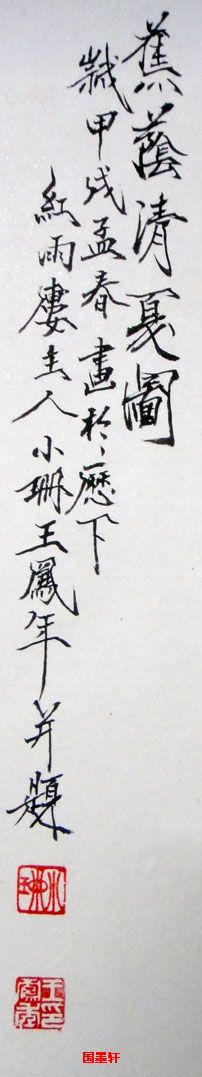 蕉蔭清夏圖
歲甲戌孟春畫於歷下
紅雨廔主人小珊王鳳年并題
小珊
国墨轩